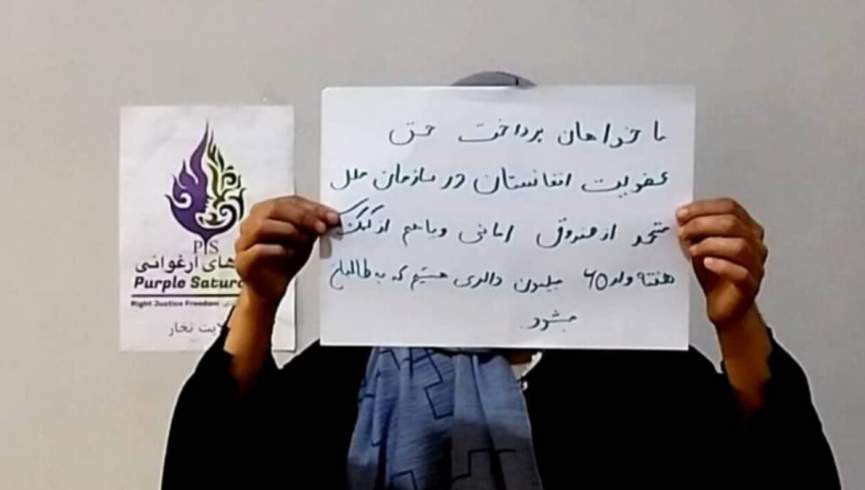 ما خواهان پرداخت حق
عضویت افغانستان در سازمان ملل
متحد از صندوق امانی ویا هم از کمک
هفته وار 40 میلیون دالری هستیم که به طالبان
میشود
PJS
های ارغوانی
Purple Satur
Right Justice Freedom
لایت تخار